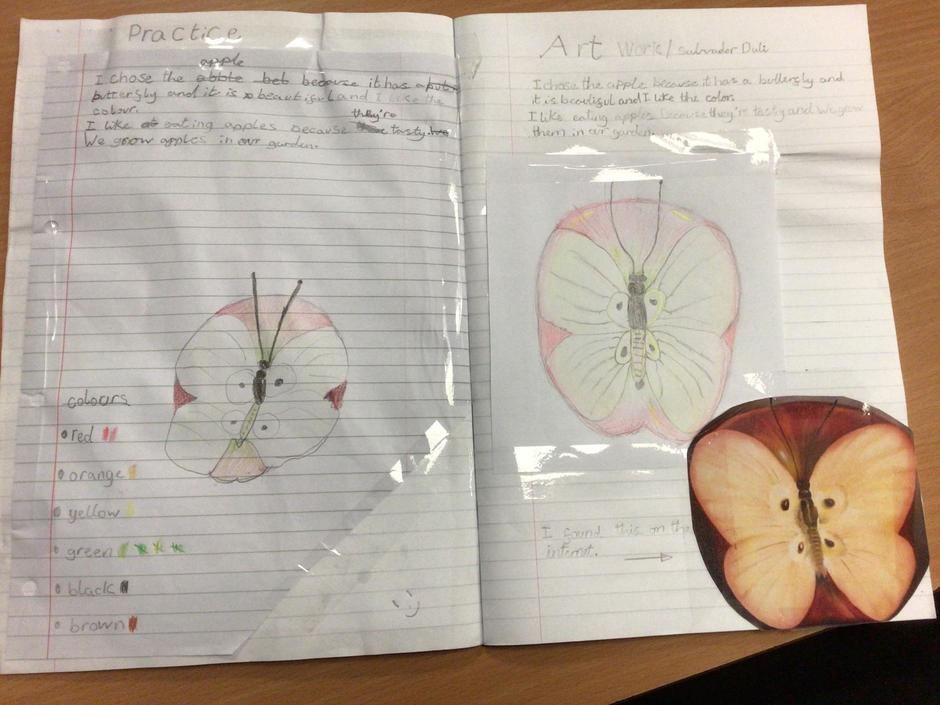 Practice
apple
I chose the abble bet because it has a buter
butterfly and it is so beautiful and I like the
colour.
they're
I like at eating apples because tasty.
We grow apples in our garden.
colours
red
orange
yellow
green
black
brown
Art Work/ Salvader Dali
I chose the apple because it has a butterfly and
it is beautiful and I like the color.
I like eating apples because they're tasty and We grow
them in our garden.
I found this on the
internet.